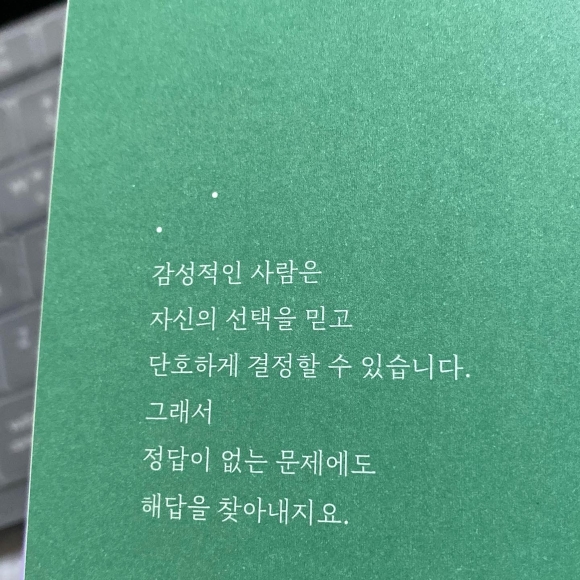 감성적인 사람은
자신의 선택을 믿고
단호하게 결정할 수 있습니다.
그래서
정답이 없는 문제에도
해답을 찾아내지요.